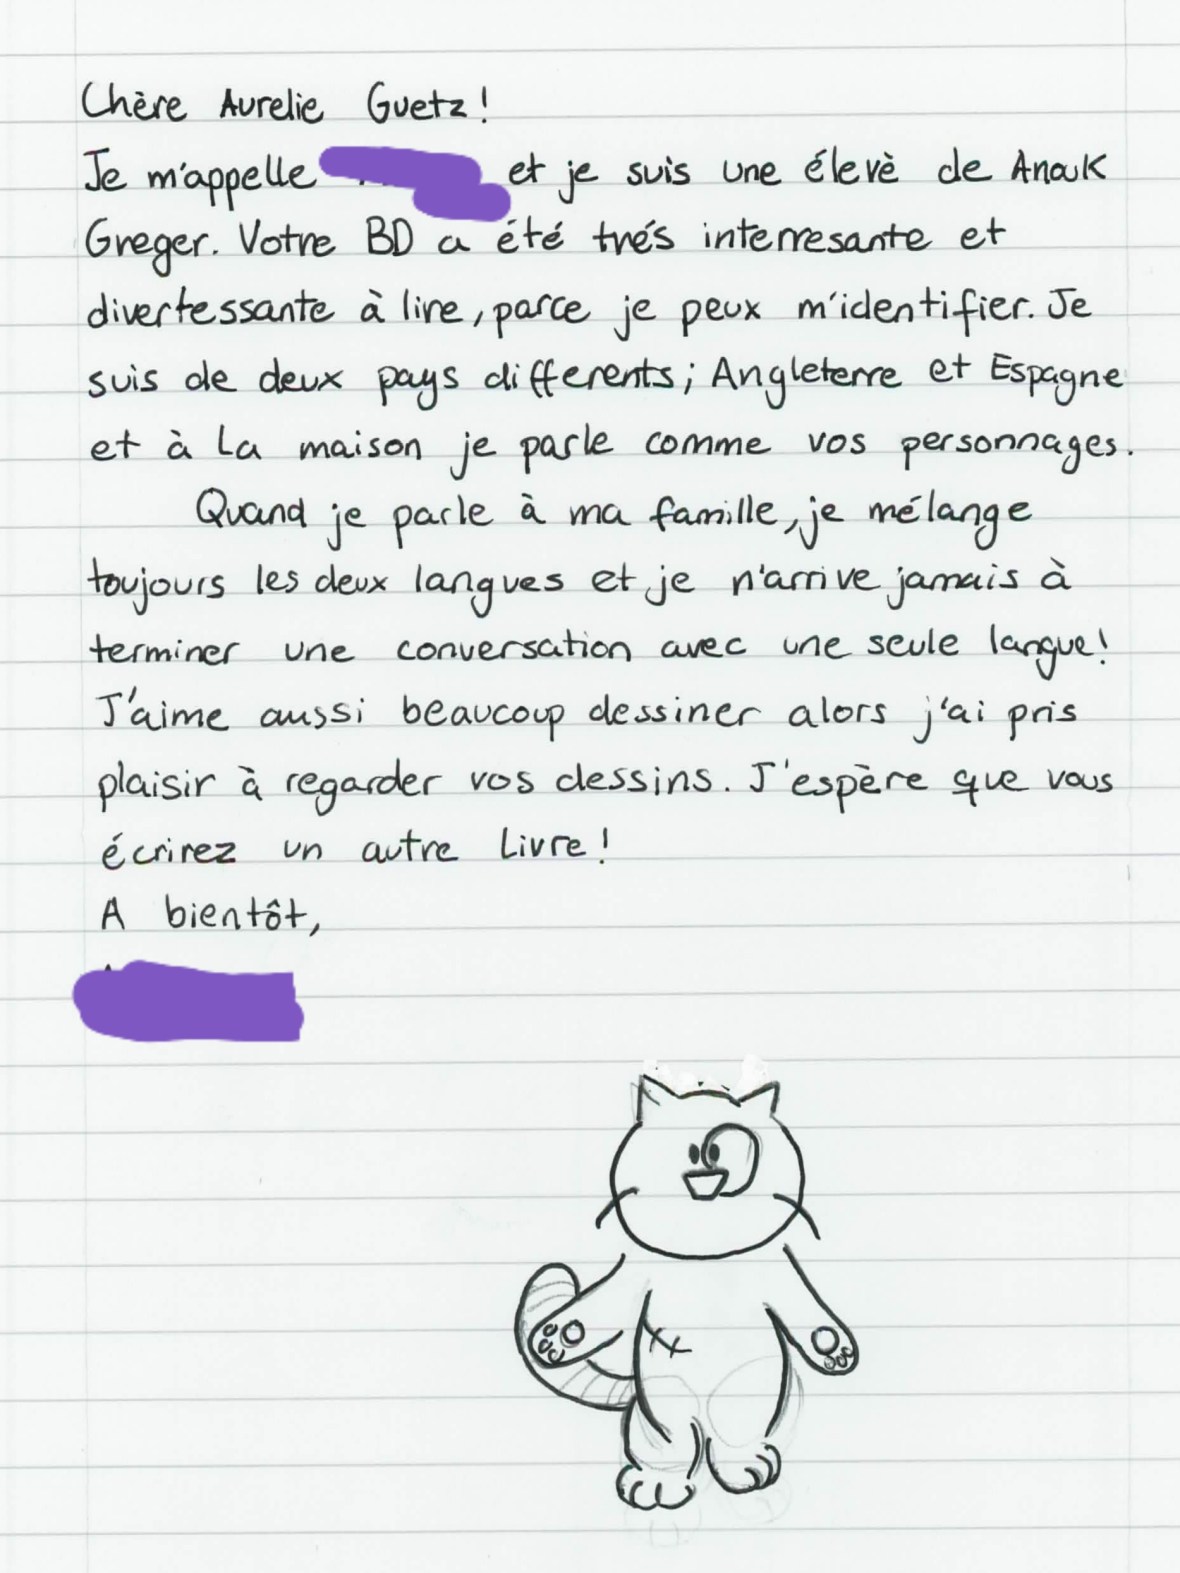 Chère Aurelie Guetz!
Je m'appelle et je suis une élevè de Anouk
Greger. Votre BD a été trés interresante et
divertessante à lire, parce je peux m'identifier. Je
suis de deux pays differents; Angleterre et Espagne
et à la maison je parle comme vos personnages.
Quand je parle à ma famille, je mélange
toujours les deux langues et je n'arrive jamais à
terminer une conversation avec une seule langue!
J'aime aussi beaucoup dessiner alors j'ai pris
plaisir à regarder vos dessins. J'espère que vous
écrirez un autre livre!
A bientôt,